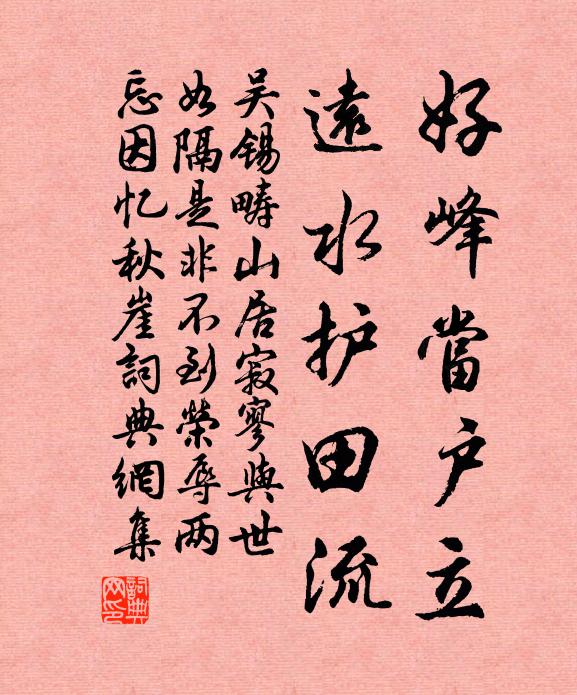 好峰當户立
遠水护田流
吴锡畴山居寂寥與世
如隔是非不到榮辱两
忘因忆秋崖詞典網集
詞典
网印